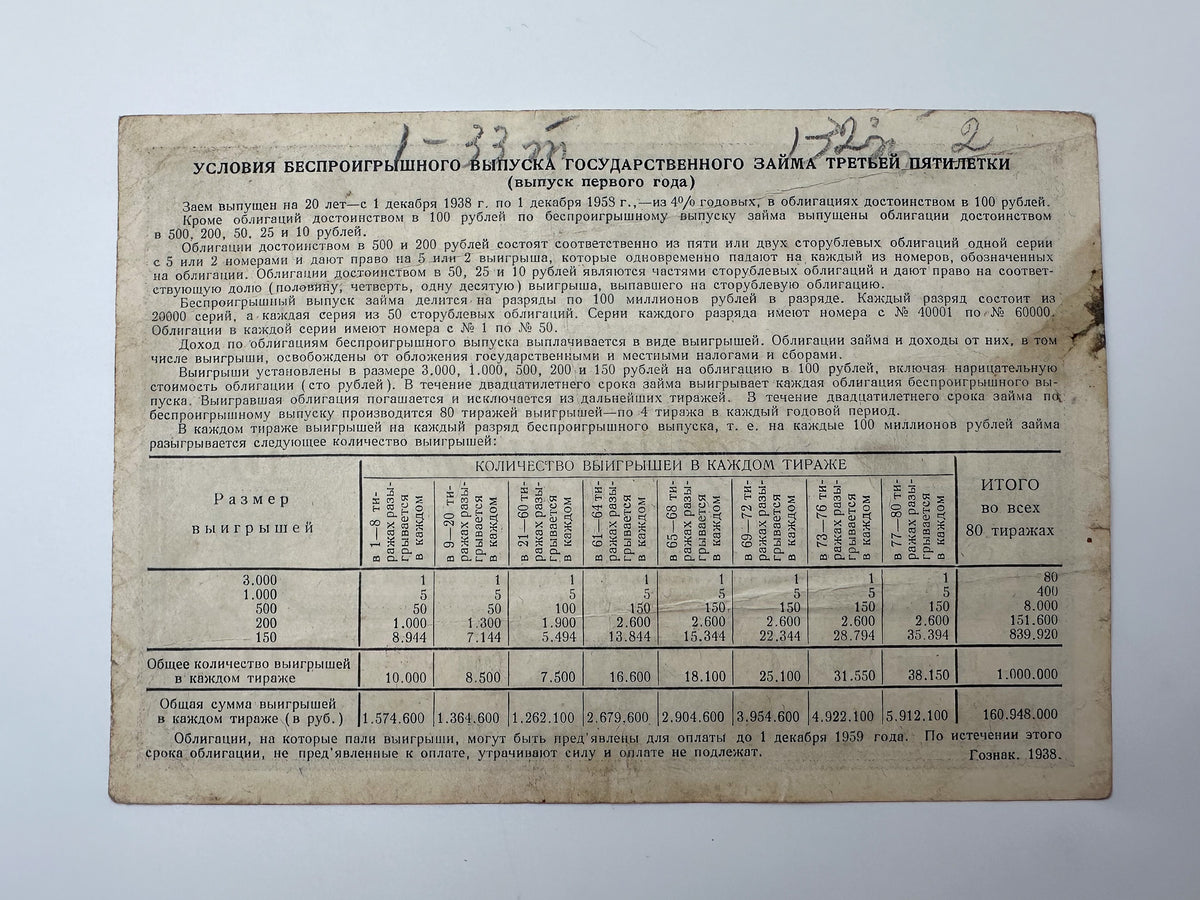 1 – 33 т
1–32 т 2
УСЛОВИЯ БЕСПРОИГРЫШНОГО ВЫПУСКА ГОСУДАРСТВЕННОГО ЗАЙМА ТРЕТЬЕЙ ПЯТИЛЕТКИ
(выпуск первого года)
Заем выпущен на 20 лет—с 1 декабря 1938 г. по 1 декабря 1958 г.,—из 4% годовых, в облигациях достоинством в 100 рублей.
Кроме облигаций достоинством в 100 рублей по беспроигрышному выпуску займа выпущены облигации достоинством
в 500, 200, 50, 25 и 10 рублей.
Облигации достоинством в 500 и 200 рублей состоят соответственно из пяти или двух сторублевых облигаций одной серии
с 5 или 2 номерами и дают право на 5 или 2 выигрыша, которые одновременно падают на каждый из номеров, обозначенных
на облигации. Облигации достоинством в 50, 25 и 10 рублей являются частями сторублевых облигаций и дают право на соответ-
ствующую долю (половину, четверть, одну десятую) выигрыша, выпавшего на сторублевую облигацию.
Беспроигрышный выпуск займа делится на разряды по 100 миллионов рублей в разряде. Каждый разряд состоит из
20000 серий, а каждая серия из 50 сторублевых облигаций. Серии каждого разряда имеют номера с № 40001 по № 60000.
Облигации в каждой серии имеют номера с № 1 по № 50.
Доход по облигациям беспроигрышного выпуска выплачивается в виде выигрышей. Облигации займа и доходы от них, в том
числе выигрыши, освобождены от обложения государственными и местными налогами и сборами.
Выигрыши установлены в размере 3.000, 1.000, 500, 200 и 150 рублей на облигацию в 100 рублей, включая нарицательную
стоимость облигации (сто рублей). В течение двадцатилетнего срока займа выигрывает каждая облигация беспроигрышного вы-
пуска. Выигравшая облигация погашается и исключается из дальнейших тиражей. В течение двадцатилетнего срока займа по
беспроигрышному выпуску производится 80 тиражей выигрышей—по 4 тиража в каждый годовой период.
В каждом тираже выигрышей на каждый разряд беспроигрышного выпуска, т. е. на каждые 100 миллионов рублей займа
разыгрывается следующее количество выигрышей:
Размер выигрышей
КОЛИЧЕСТВО ВЫИГРЫШЕЙ В КАЖДОМ ТИРАЖЕ
в 1—8 ти-
ражах разы-
грывается
в каждом
в 9—20 ти-
ражах разы-
грывается
в каждом
в 21—60 ти-
ражах разы-
грывается
в каждом
в 61—64 ти-
ражах разы-
грывается
в каждом
в 65—68 ти-
ражах разы-
грывается
в каждом
в 69—72 ти-
ражах разы-
грывается
в каждом
в 73—76 ти-
ражах разы-
грывается
в каждом
в 77—80 ти-
ражах разы-
грывается
в каждом
ИТОГО
во всех
80 тиражах
3.000 1 1 1 1 1 1 1 1 80
1.000 5 5 5 5 5 5 5 5 400
500 50 50 100 150 150 150 150 150 8.000
200 1.000 1.300 1.900 2.600 2.600 2.600 2.600 2.600 151.600
150 8.944 7.144 5.494 13.844 15.344 22.344 28.794 35.394 839.920
Общее количество выигрышей
в каждом тираже 10.000 8.500 7.500 16.600 18.100 25.100 31.550 38.150 1.000.000
Общая сумма выигрышей
в каждом тираже (в руб.) 1.574.600 1.364.600 1.262.100 2.679.600 2.904.600 3.954.600 4.922.100 5.912.100 160.948.000
Облигации, на которые пали выигрыши, могут быть пред'явлены для оплаты до 1 декабря 1959 года. По истечении этого
срока облигации, не пред'явленные к оплате, утрачивают силу и оплате не подлежат.
Гознак. 1938.